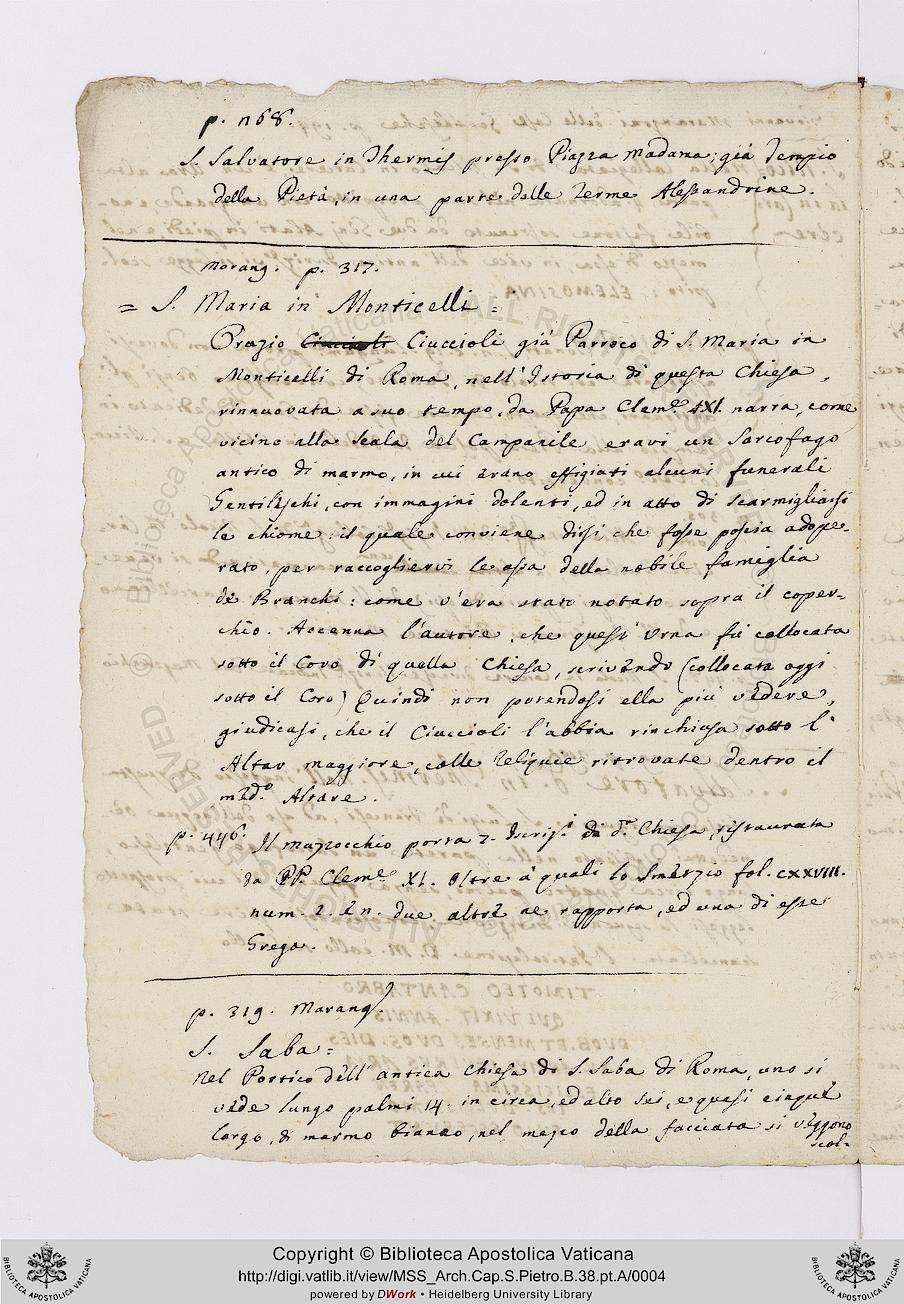 p. 268.
S. Salvatore in Thermis presso Piazza Madama; già Tempio
della Pietà, in una parte delle Terme Alessandrine.
Marang. p. 317.
= S. Maria in Monticelli =
Orazio Ciuccioli Ciuccioli già Parroco di S. Maria in
Monticelli di Roma, nell'Istoria di questa Chiesa,
rinnuovata a suo tempo, da Papa Clem.e XI. narra, come
vicino alla scala del Campanile eravi un Sarcofago
antico di marmo, in cui erano effigiati alcuni funerali
Gentileschi, con immagini dolenti, ed in atto di scarmigliarsi
le chiome: il quale conviene dirsi, che fosse poscia adope-
rato, per raccogliervi le ossa della nobile famiglia
de Branchi: come v'era stato notato sopra il coper-
chio. Accenna l'autore, che quest'Urna fù collocata
sotto il Coro di quella Chiesa, scrivendo (collocata oggi
sotto il Coro) Quindi non potendosi ella più vedere,
giudicasi, che il Ciuccioli l'abbia rinchiusa sotto l'
Altar maggiore, colle Reliquie ritrovate dentro il
med.o Altare.
p. 446. Il Mazzocchio porta 2. Iscriz.i di d.a Chiesa, ristaurata
da PP. Clem.e XI. Oltre a quali lo Smezio fol. CXXVIII.
num. 2. e n. due altre ne rapporta, ed una di esse
Grega.
p. 319. Marang.
S. Saba =
Nel Portico dell'antica Chiesa di S. Saba di Roma, uno si
vede lungo palmi 14. in circa, ed alto sei, e quasi cinque
largo, di marmo bianco, nel mezzo della facciata si veggono
scol-
Copyright © Biblioteca Apostolica Vaticana
http://digi.vatlib.it/view/MSS_Arch.Cap.S.Pietro.B.38.pt.A/0004
powered by DWork • Heidelberg University Library